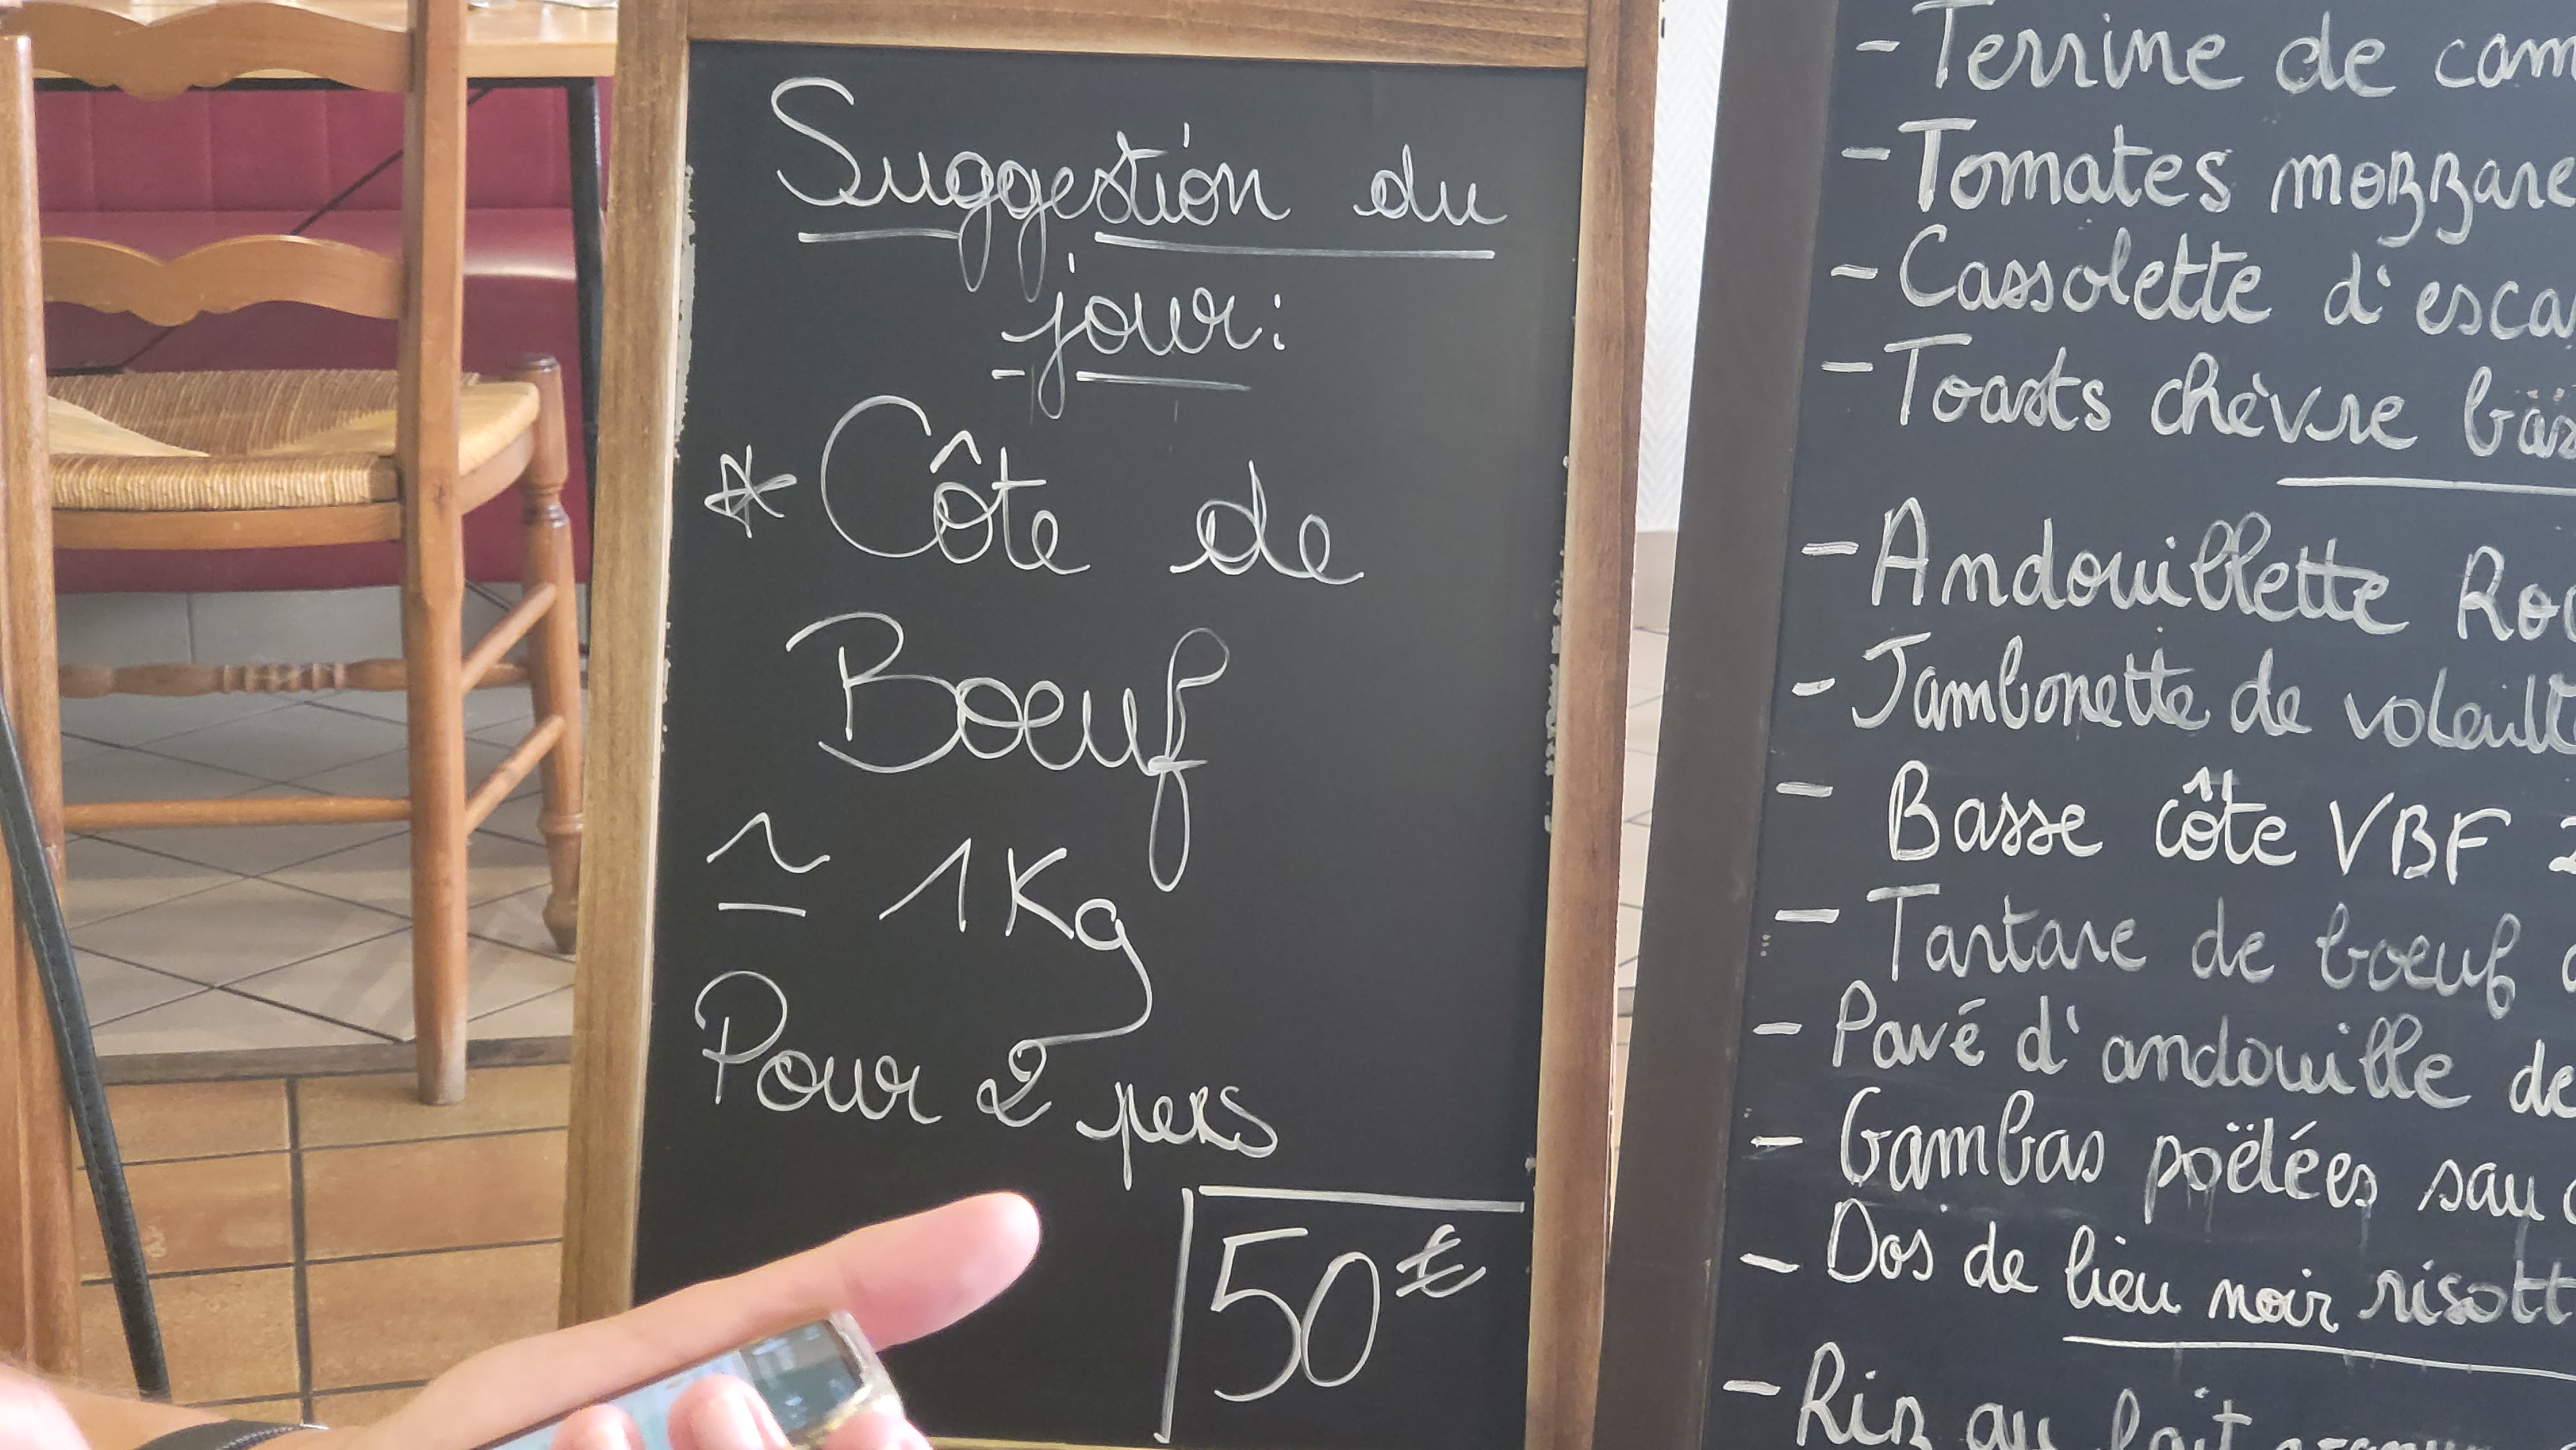 Suggestion du
jour:
* Côte de
Boeuf
≃ 1 Kg
Pour 2 pers
50€
- Terrine de cam
- Tomates mozzare
- Cassolette d'esca
- Toasts chèvre
- Andouillette
- Jambonette de volaill
- Basse côte VBF 2
- Tartare de boeuf
- Pavé d'andouille de
- Gambas poëlées sau
- Dos de lieu noir risott
- Riz au lait